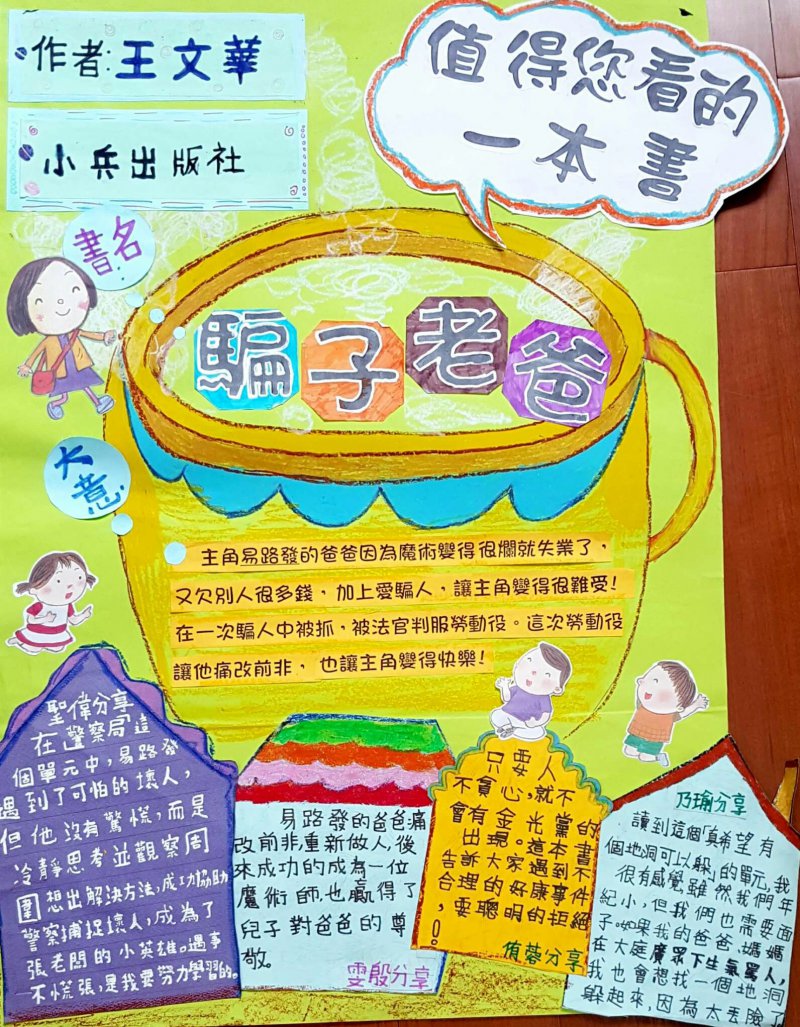 作者:王文華
小兵出版社
值得您看的
一本書
書名
騙子老爸
大意
主角易路發的爸爸因為魔術變得很爛就失業了，
又欠別人很多錢，加上愛騙人，讓主角變得很難受!
在一次騙人中被抓，被法官判服勞動役。這次勞動役
讓他痛改前非，也讓主角變得快樂!
聖偉分享
在警察局這
個單元中，易路發
遇到了可怕的壞人，
但他沒有驚慌，而是
冷靜思考並觀察周
圍想出解決方法，成功協助
警察捕捉壞人，成為了
張老闆的小英雄。遇事
不慌張，是我要努力學習的。
易路發的爸爸痛
改前非，重新做人，後
來成功的成為一位
魔術師，也贏得了
兒子對爸爸的尊
敬。
雯殷分享
只要人
不貪心，就不
會有金光黨的
出現。這本書
告訴大家遇到不
合理的好康事件
，要聰明的拒絕
。
侑蓉分享
乃瑜分享
讀到這個「真希望有
個地洞可以躲」的單元，我
很有感覺雖然我們年
紀小，但我們也需要面
子。如果我的爸爸、媽媽
在大庭廣眾下生氣罵人，
我也會想找一個地洞
躲起來，因為太丟臉了